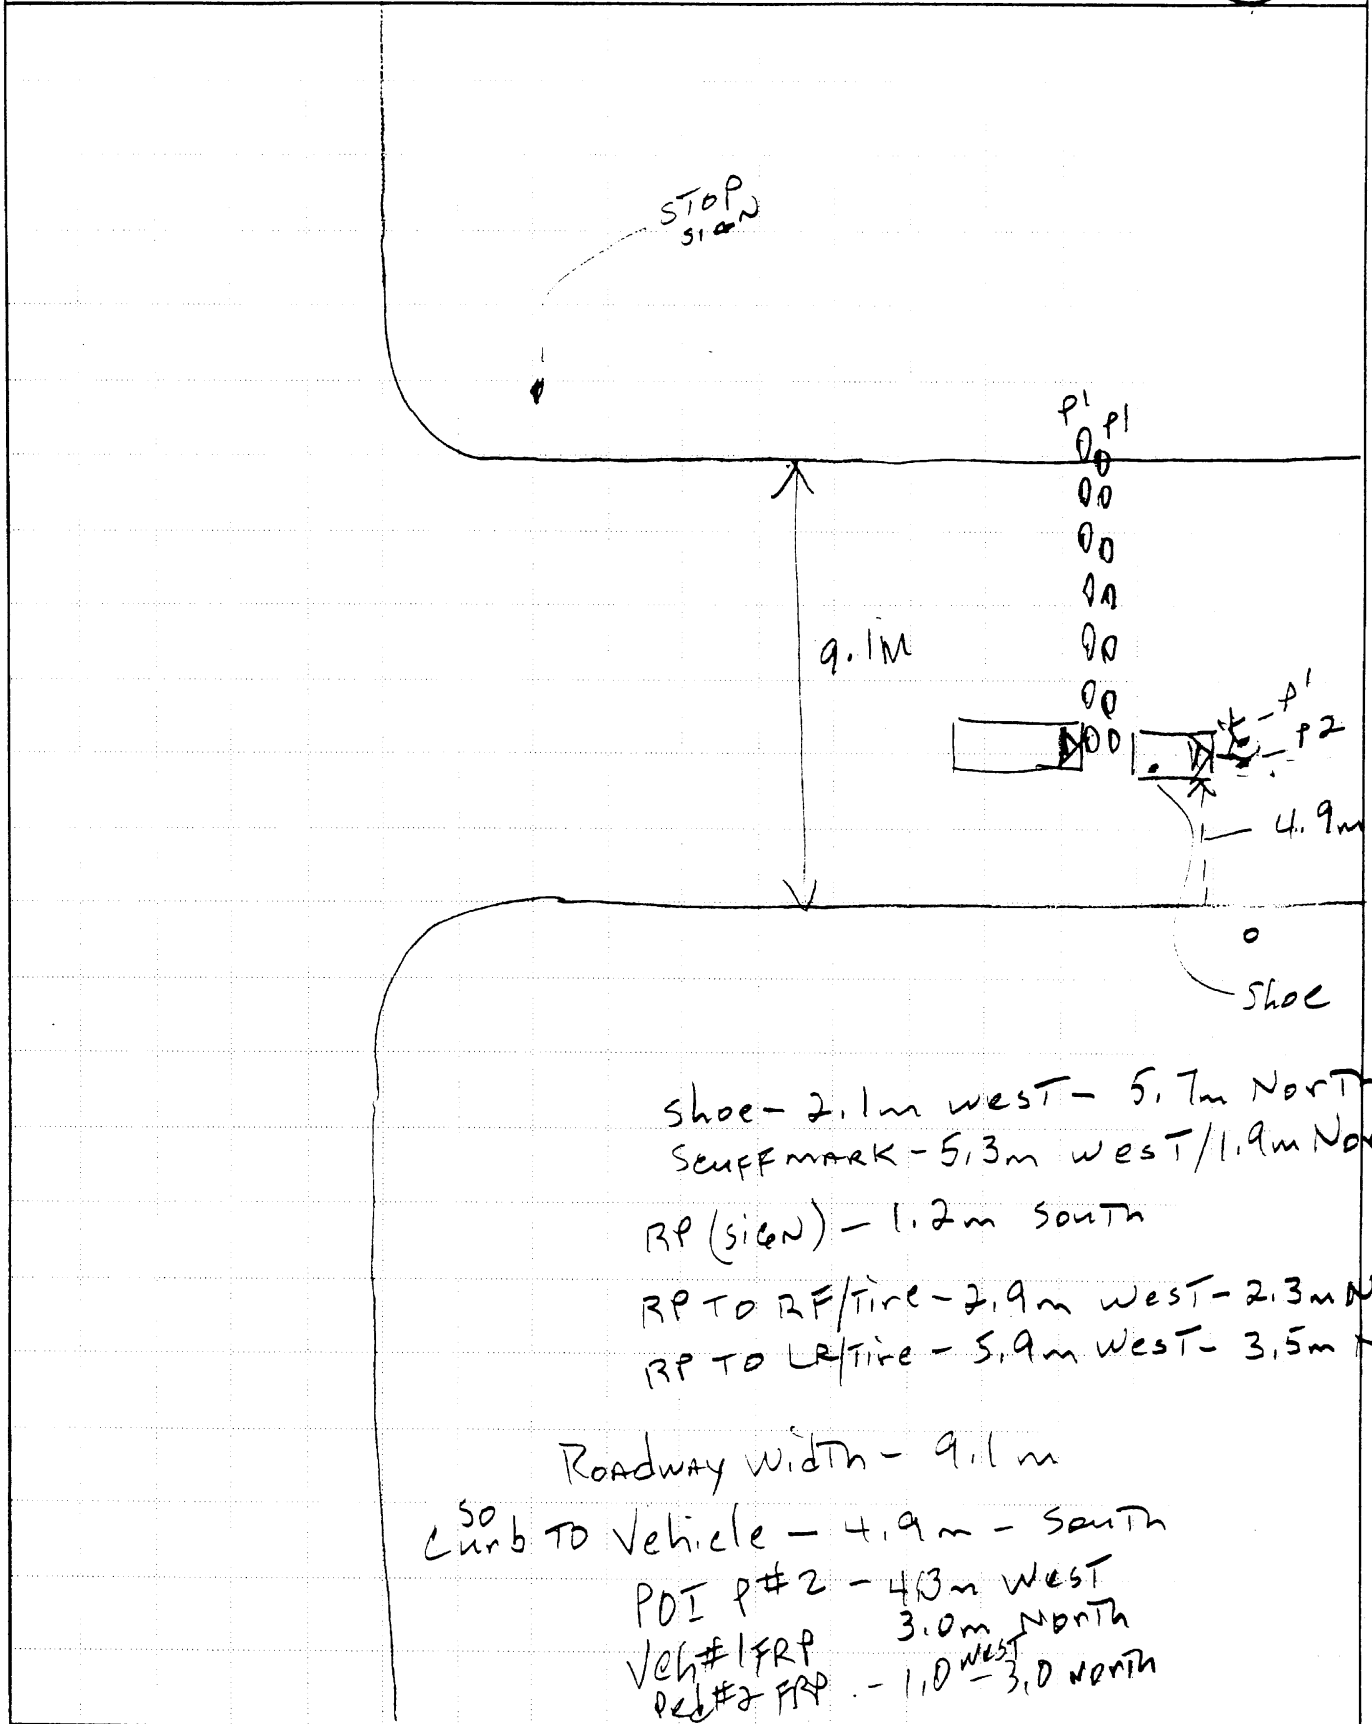 STOP
SIGN
P1 P1
9.1M
P1
P2
4.9m
Shoe
Shoe - 2.1m west - 5.7m Nort
Scuffmark - 5.3m west/1.9m Nor
RP (sign) - 1.2m south
RP to RF/Tire - 2.9m west - 2.3m N
RP to LR/Tire - 5.9m west - 3.5m
Roadway width - 9.1m
so
Curb to Vehicle - 4.9m - South
POI P#2 - 4.3m West
3.0m North
Veh#1 FRP
Ped#2 FRP - 1.0 west - 3.0 North